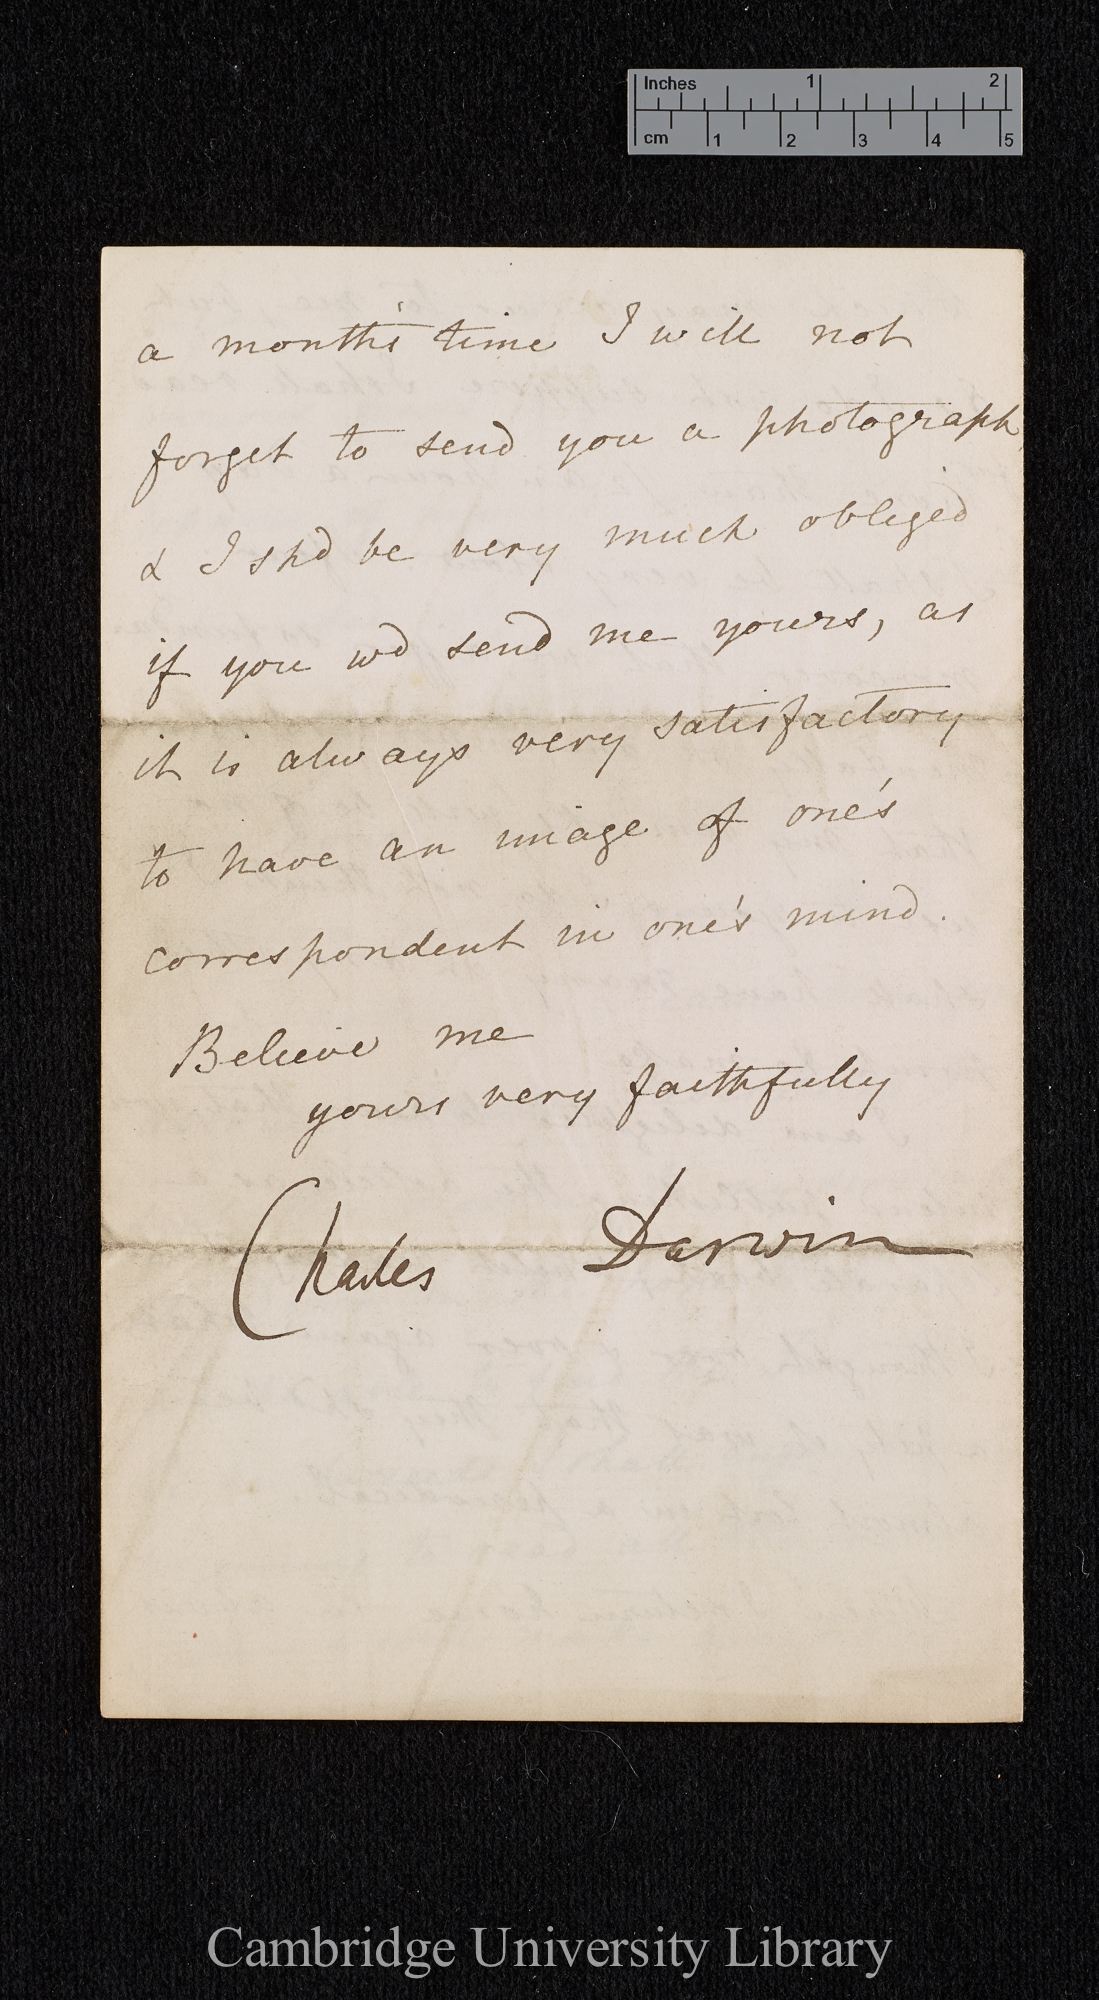 Inches 1 2
cm 1 2 3 4 5
a month's time I will not
forget to send you a photograph,
& I shd be very much obliged
if you wd send me yours, as
it is always very satisfactory
to have an image of one's
correspondent in one's mind.
Believe me
yours very faithfully
Charles Darwin
Cambridge University Library